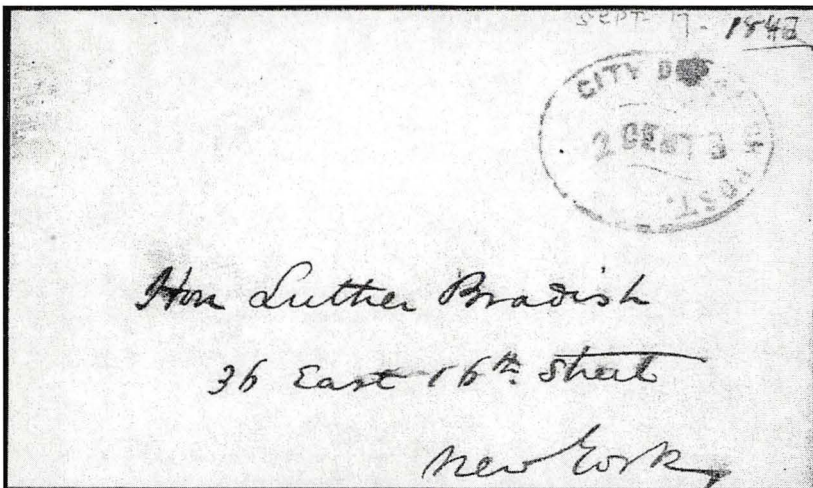 SEPT - 17 - 1848
CITY DESPATCH POST.
2 CENTS
Hon Luther Bradish
36 East 16th Street
New York